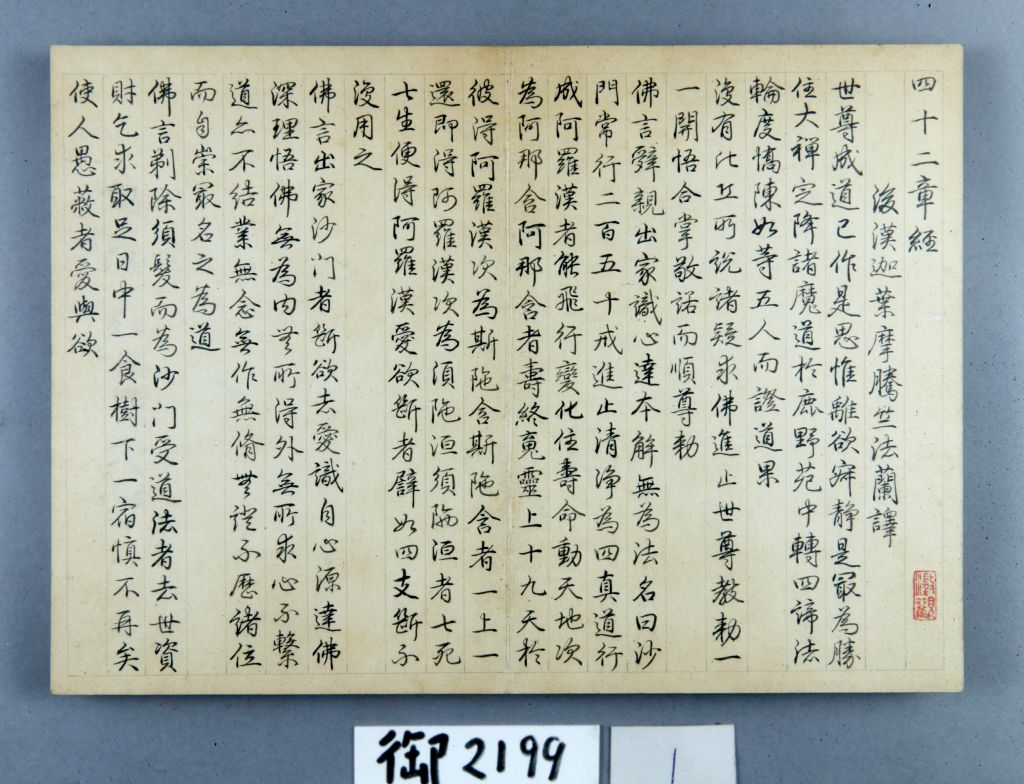 四十二章經
後漢迦葉摩騰竺法蘭譯
世尊成道已作是思惟離欲寂静是最為勝
住大禪定降諸魔道於鹿野苑中轉四諦法
輪度憍陳如等五人而證道果
復有比丘所說諸疑求佛進止世尊教勅一
一開悟合掌敬諾而順尊勅
佛言辭親出家識心達本解無為法名曰沙
門常行二百五十戒進止清淨為四真道行
成阿羅漢者能飛行變化住壽命動天地次
為阿那含阿那含者壽終䰟靈上十九天於
彼得阿羅漢次為斯陁含斯陁含者一上一
還即得阿羅漢次為須陁洹須陁洹者七死
七生便得阿羅漢愛欲斷者譬如四支斷不
復用之
佛言出家沙门者斷欲去愛識自心源達佛
深理悟佛無為内無所得外無所求心不繫
道亦不結業無念無作無脩無證不歷諸位
而自崇最名之為道
佛言剃除須髮而為沙门受道法者去世資
財乞求取足日中一食樹下一宿慎不再矣
使人愚蔽者愛與欲
御2199
1